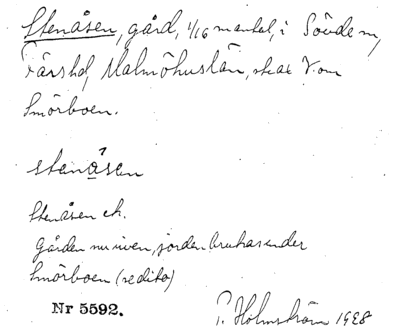 Stenåsen, gård, 1/16 mantal, i Sövde sn,
Färshd, Malmöhuslän, strax V. om
Smörboen.
stenåsen
Stenåsen ek.
Gården nu riven, jorden brukas under
Smörboen (se ditto)
Nr 5592.
P. Holmström 1928